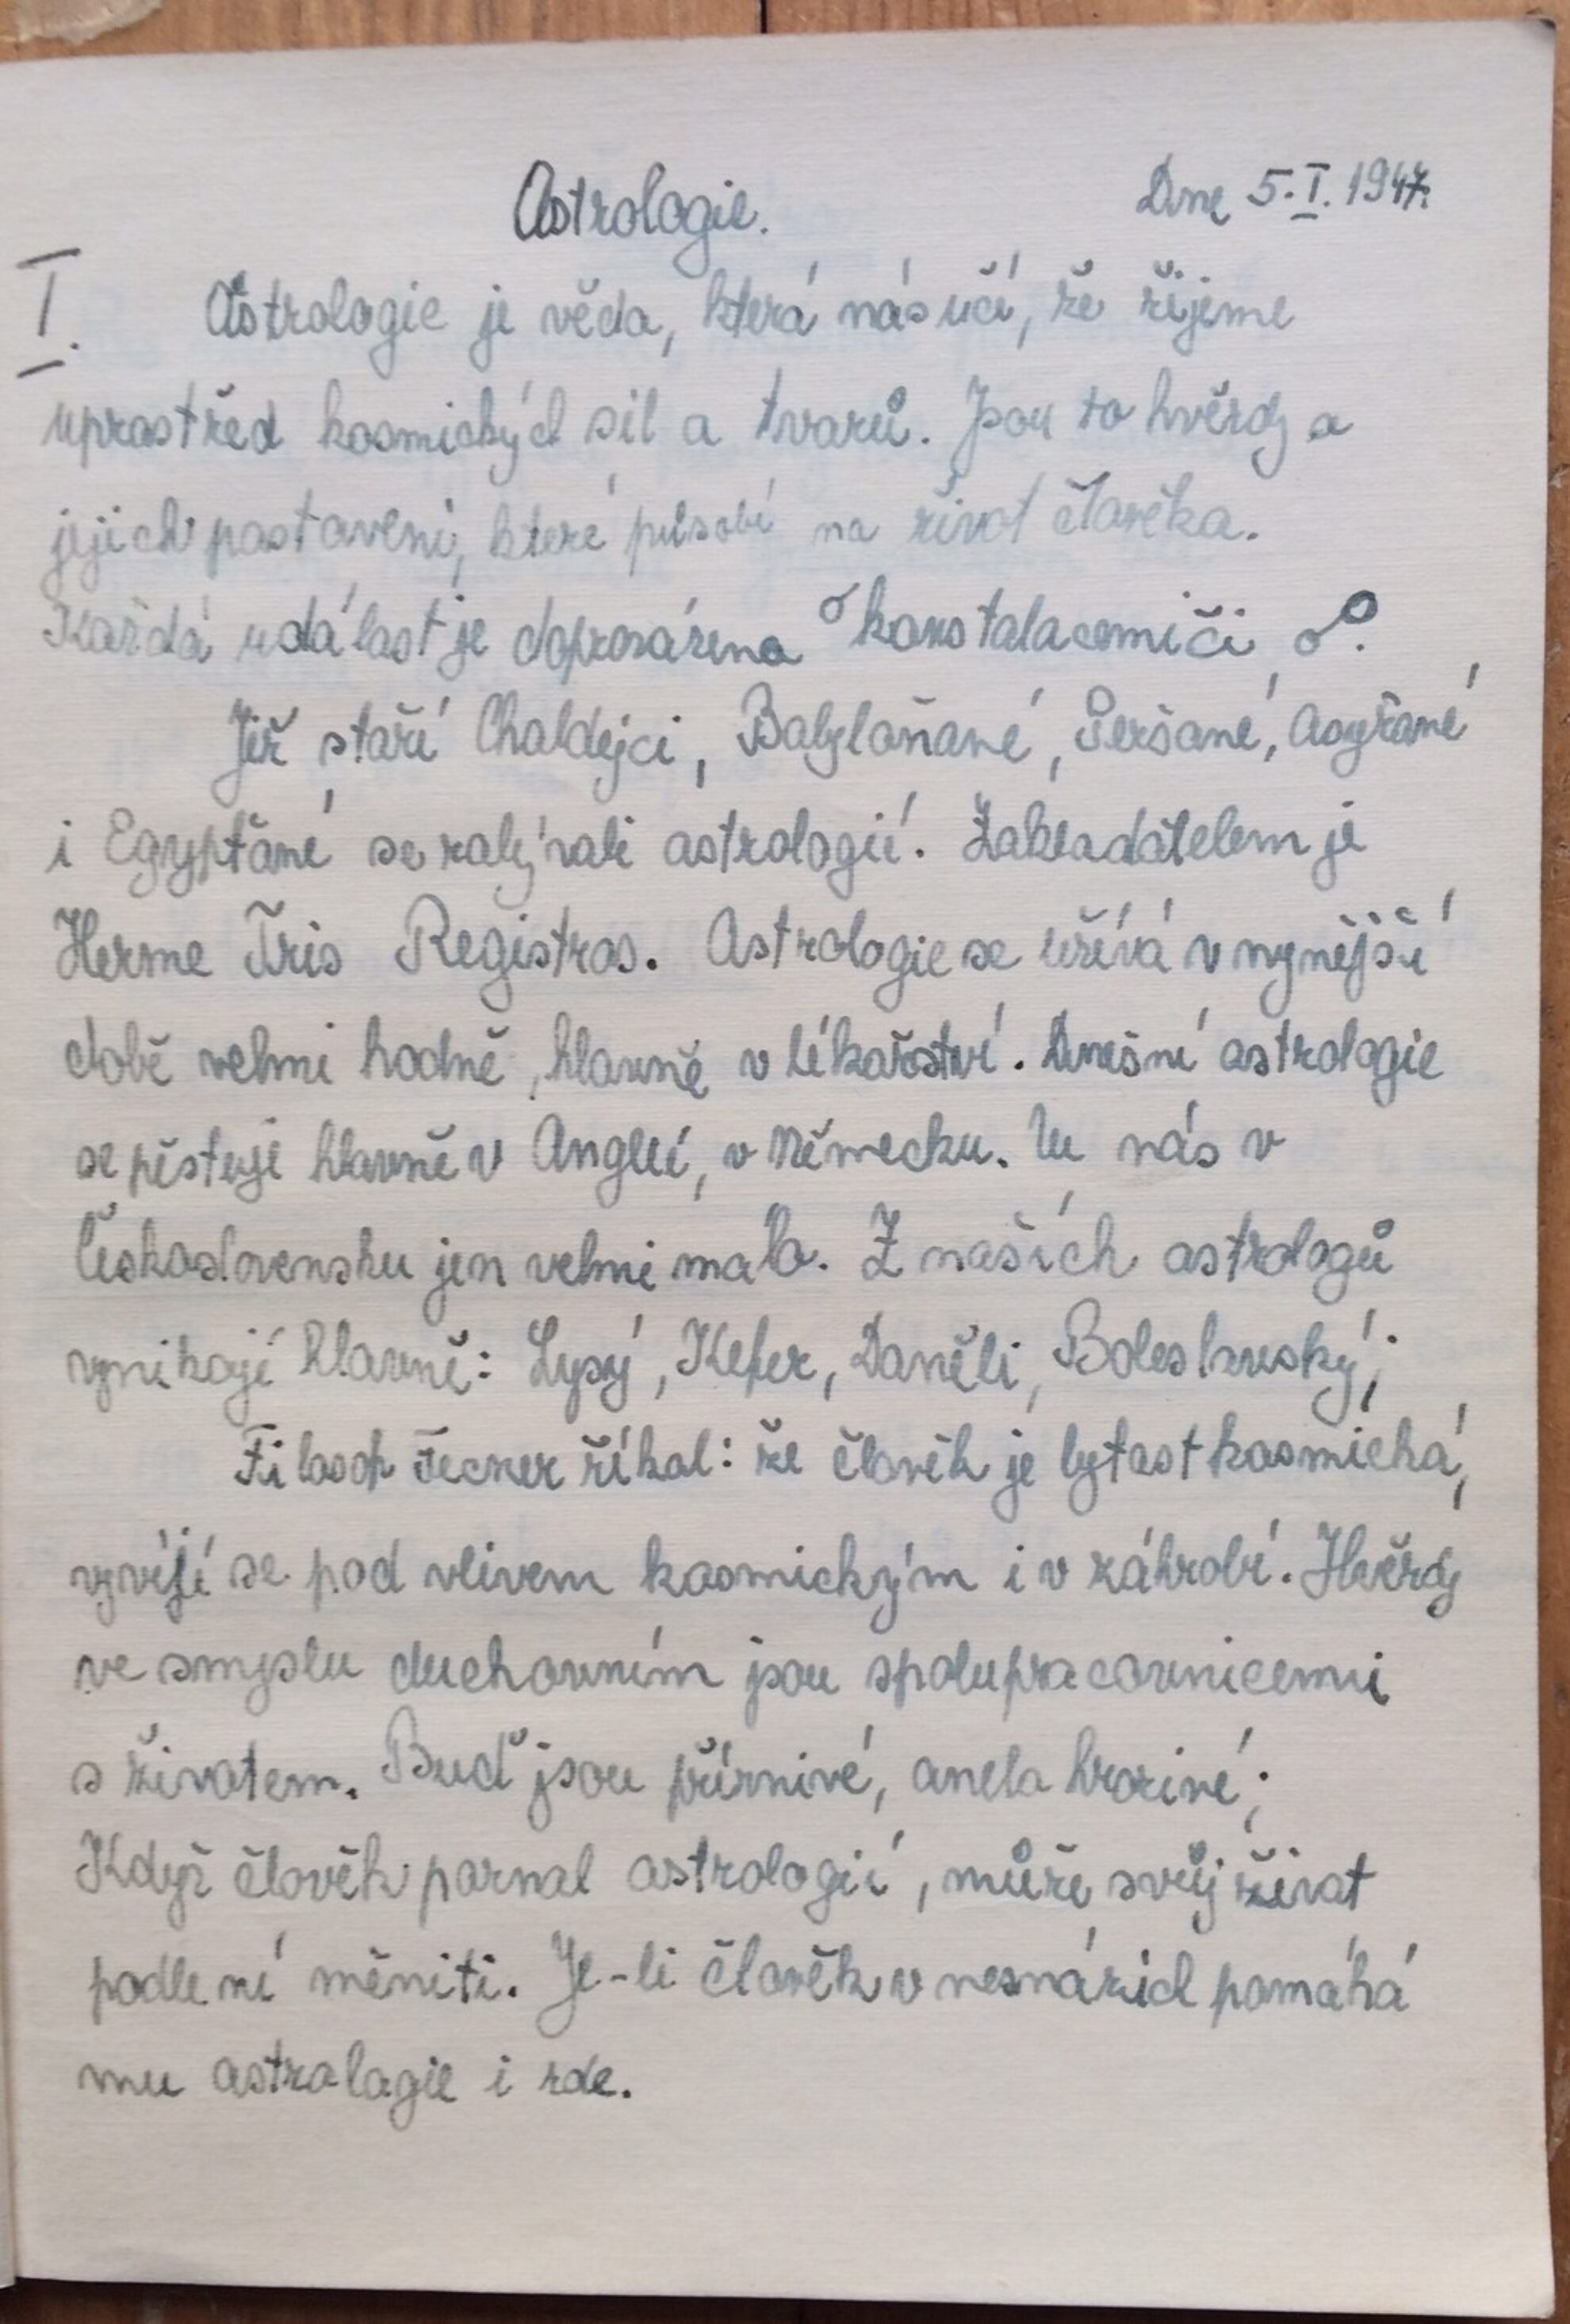 Astrologie. Dne 5.I.1947.
I. Astrologie je věda, která nás učí, že žijeme
uprostřed kosmických sil a tvarů. Jsou to hvězdy a
jejich postavení, které působí na život člověka.
Každá událost je doprovázena ☌ konstalacemi či ☍.
Již staří Chaldejci, Babyloňané, Peršané, Asyřané,
i Egyptané se zabývali astrologií. Zakladatelem je
Herme Tris Registros. Astrologie se užívá v nynější
době velmi hodně, hlavně v lékařství. Dnešní astrologie
se pěstuje hlavně v Anglii, v Německu. U nás v
Československu jen velmi málo. Z našich astrologů
vynikají hlavně: Lysý, Kefer, Daněli, Boleslavský;
Filosof Fecner říkal: že člověk je bytost kosmická,
vyvíjí se pod vlivem kosmickým i v záhrobí. Hvězdy
ve smyslu duchovním jsou spolupracovnicemi
s životem. Buď jsou příznivé, anebo hrozivé;
Když člověk poznal astrologii, může svůj život
podle ní měniti. Je-li člověk v nesnázích pomáhá
mu astrologie i zde.